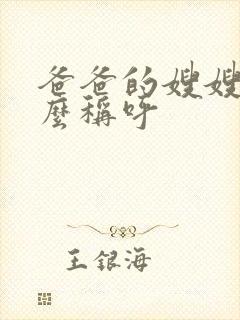 爸爸的嫂嫂
麼稱呼
王银海